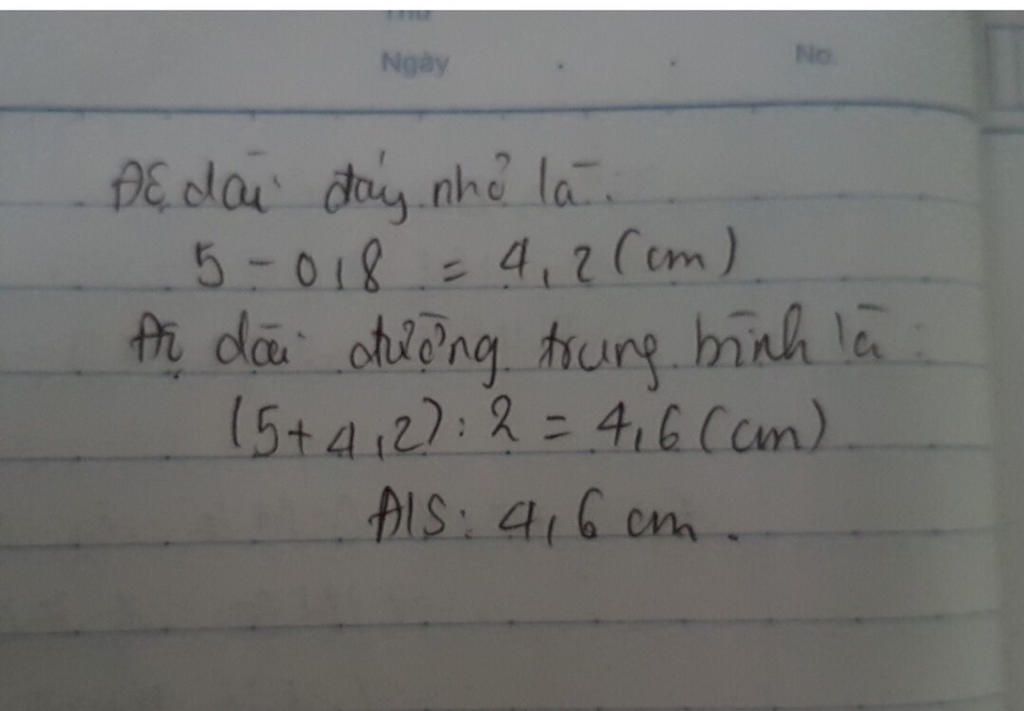 Thứ
Ngày . . No.
Độ dài đáy nhỏ là:
5 - 0,8 = 4,2 (cm)
Độ dài đường trung bình là:
(5 + 4,2) : 2 = 4,6 (cm)
Đ/S: 4,6 cm.